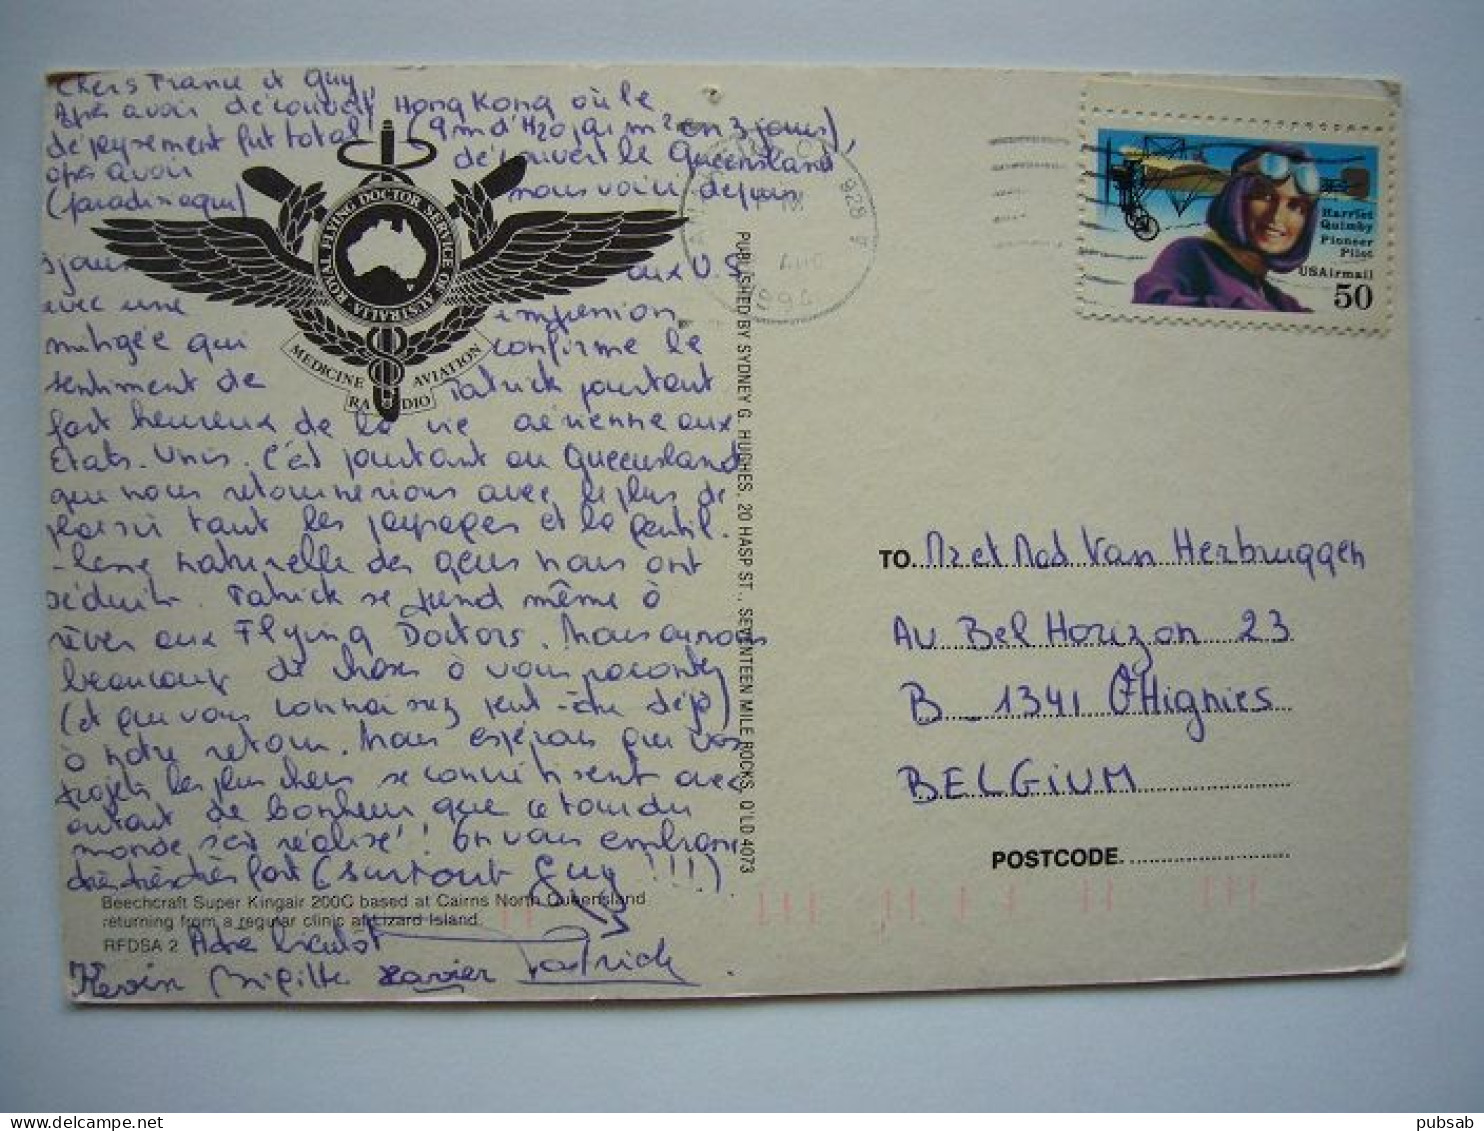 Chers France et Guy,
Après avoir découvert Hong Kong où le
dépaysement fut total (9m d'H2O/m² en 3 jours),
après avoir découvert le Queensland
(paradisiaque) nous voici depuis
jours aux U.S
avec une impression
mitigée qui confirme le
sentiment de Patrick pourtant
fort heureux de la vie aérienne aux
Etats-Unis. C'est pourtant au Queensland
que nous retournerions avec le plus de
plaisir tant les paysages et la gentil-
-lesse naturelle des gens nous ont
séduits. Patrick se prend même à
rêver aux Flying Doctors. Nous avons
beaucoup de choses à vous raconter
(et que vous connaissez peut-être déjà)
à notre retour. Nous espérons que vos
projets les plus chers se concrétisent avec
autant de bonheur que ce tour du
monde s'est réalisé! On vous embrasse
très très très fort (surtout Guy !!!)
ROYAL FLYING DOCTOR SERVICE OF AUSTRALIA
MEDICINE AVIATION
RADIO
Beechcraft Super Kingair 200C based at Cairns North Queensland
returning from a regular clinic at Lizard Island.
RFDSA 2
Kevin Brigitte Xavier Patrick
PUBLISHED BY SYDNEY G. HUGHES, 20 HASP ST., SEVENTEEN MILE ROCKS. Q'LD 4073
928
1994
Harriet
Quimby
Pioneer
Pilot
USAirmail
50
TO. Mr et Mad Van Herbruggen
Av Bel Horizon 23
B _ 1341 Ottignies
BELGIUM
POSTCODE
pubsab